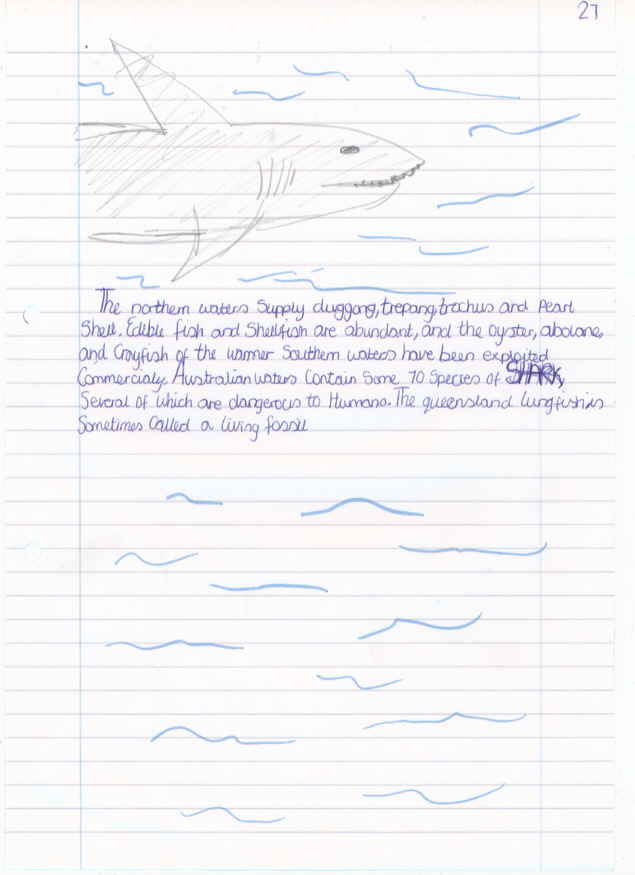 27
The northern waters Supply duggong, trepang, trochus and Pearl
Shell. Edible fish and Shellfish are abundant, and the oyster, abolane,
and Crayfish of the warmer Southern waters have been exploited
Commercialy. Australian waters Contain Some 70 Species of SHARK,
Several of which are dangerous to Humans. The queensland lungfish is
Sometimes Called a living fossil